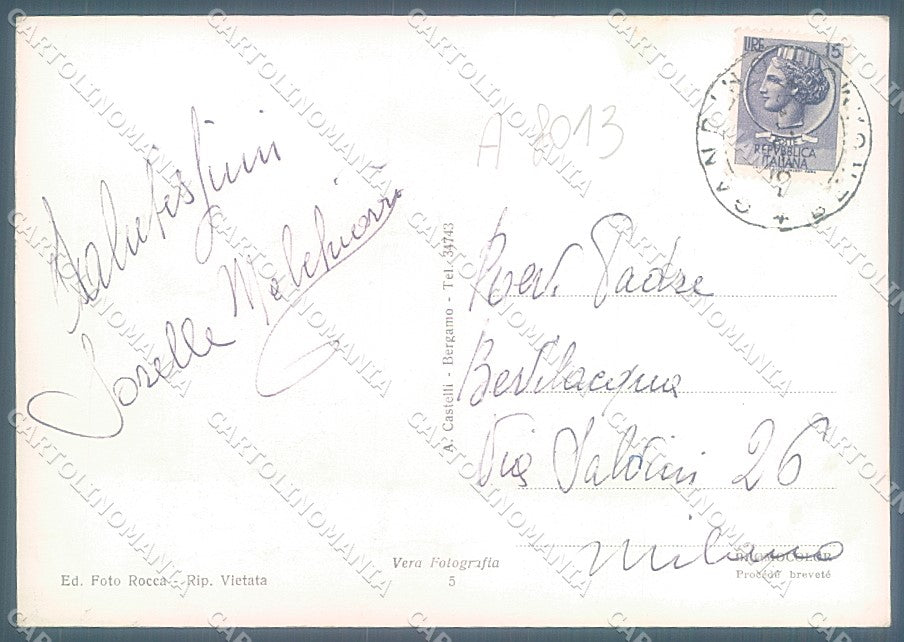 A 8013
LIRE 15
POSTE
REPVBBLICA
ITALIANA
Saluti
Sorelle Melchiorri
Rev. Padre
Bevilacqua
Via Saldini 26
Milano
A. Castelli - Bergamo - Tel. 34743
Vera Fotografia
5
Ed. Foto Rocca - Rip. Vietata
BROMOCOLOR
Procédé breveté
CARTOLINOMANIA